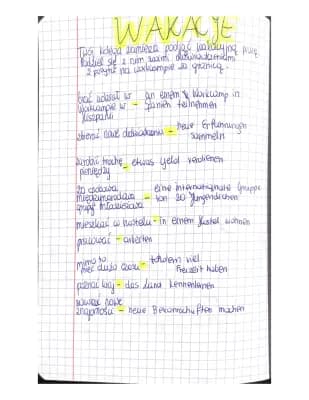 WAKACJE
Twój kolega zamierza podjąć wakacyjną pracę.
Podziel się z nim swoimi doświadczeniami
z pobytu na workcampie za granicą.
brać udział w - an einem Workcamp in
Workcampie w - Spanien teilnehmen
Hiszpanii
zbierać nowe doświadczenia - neue Erfahrungen
sammeln
zarobić trochę - etwas Geld verdienen
pieniędzy
20 osobowa eine internationale Gruppe
międzynarodowa - von 20 Jungendlichen
grupa młodzieżowa
mieszkać w hostelu - in einem Hostel wohnen
pracować - arbeiten
mimo to - trotzdem viel
mieć dużo czasu Freizeit haben
poznać kraj - das Land kennenlernen
zawrzeć nowe
znajomości - neue Bekanntschaften machen